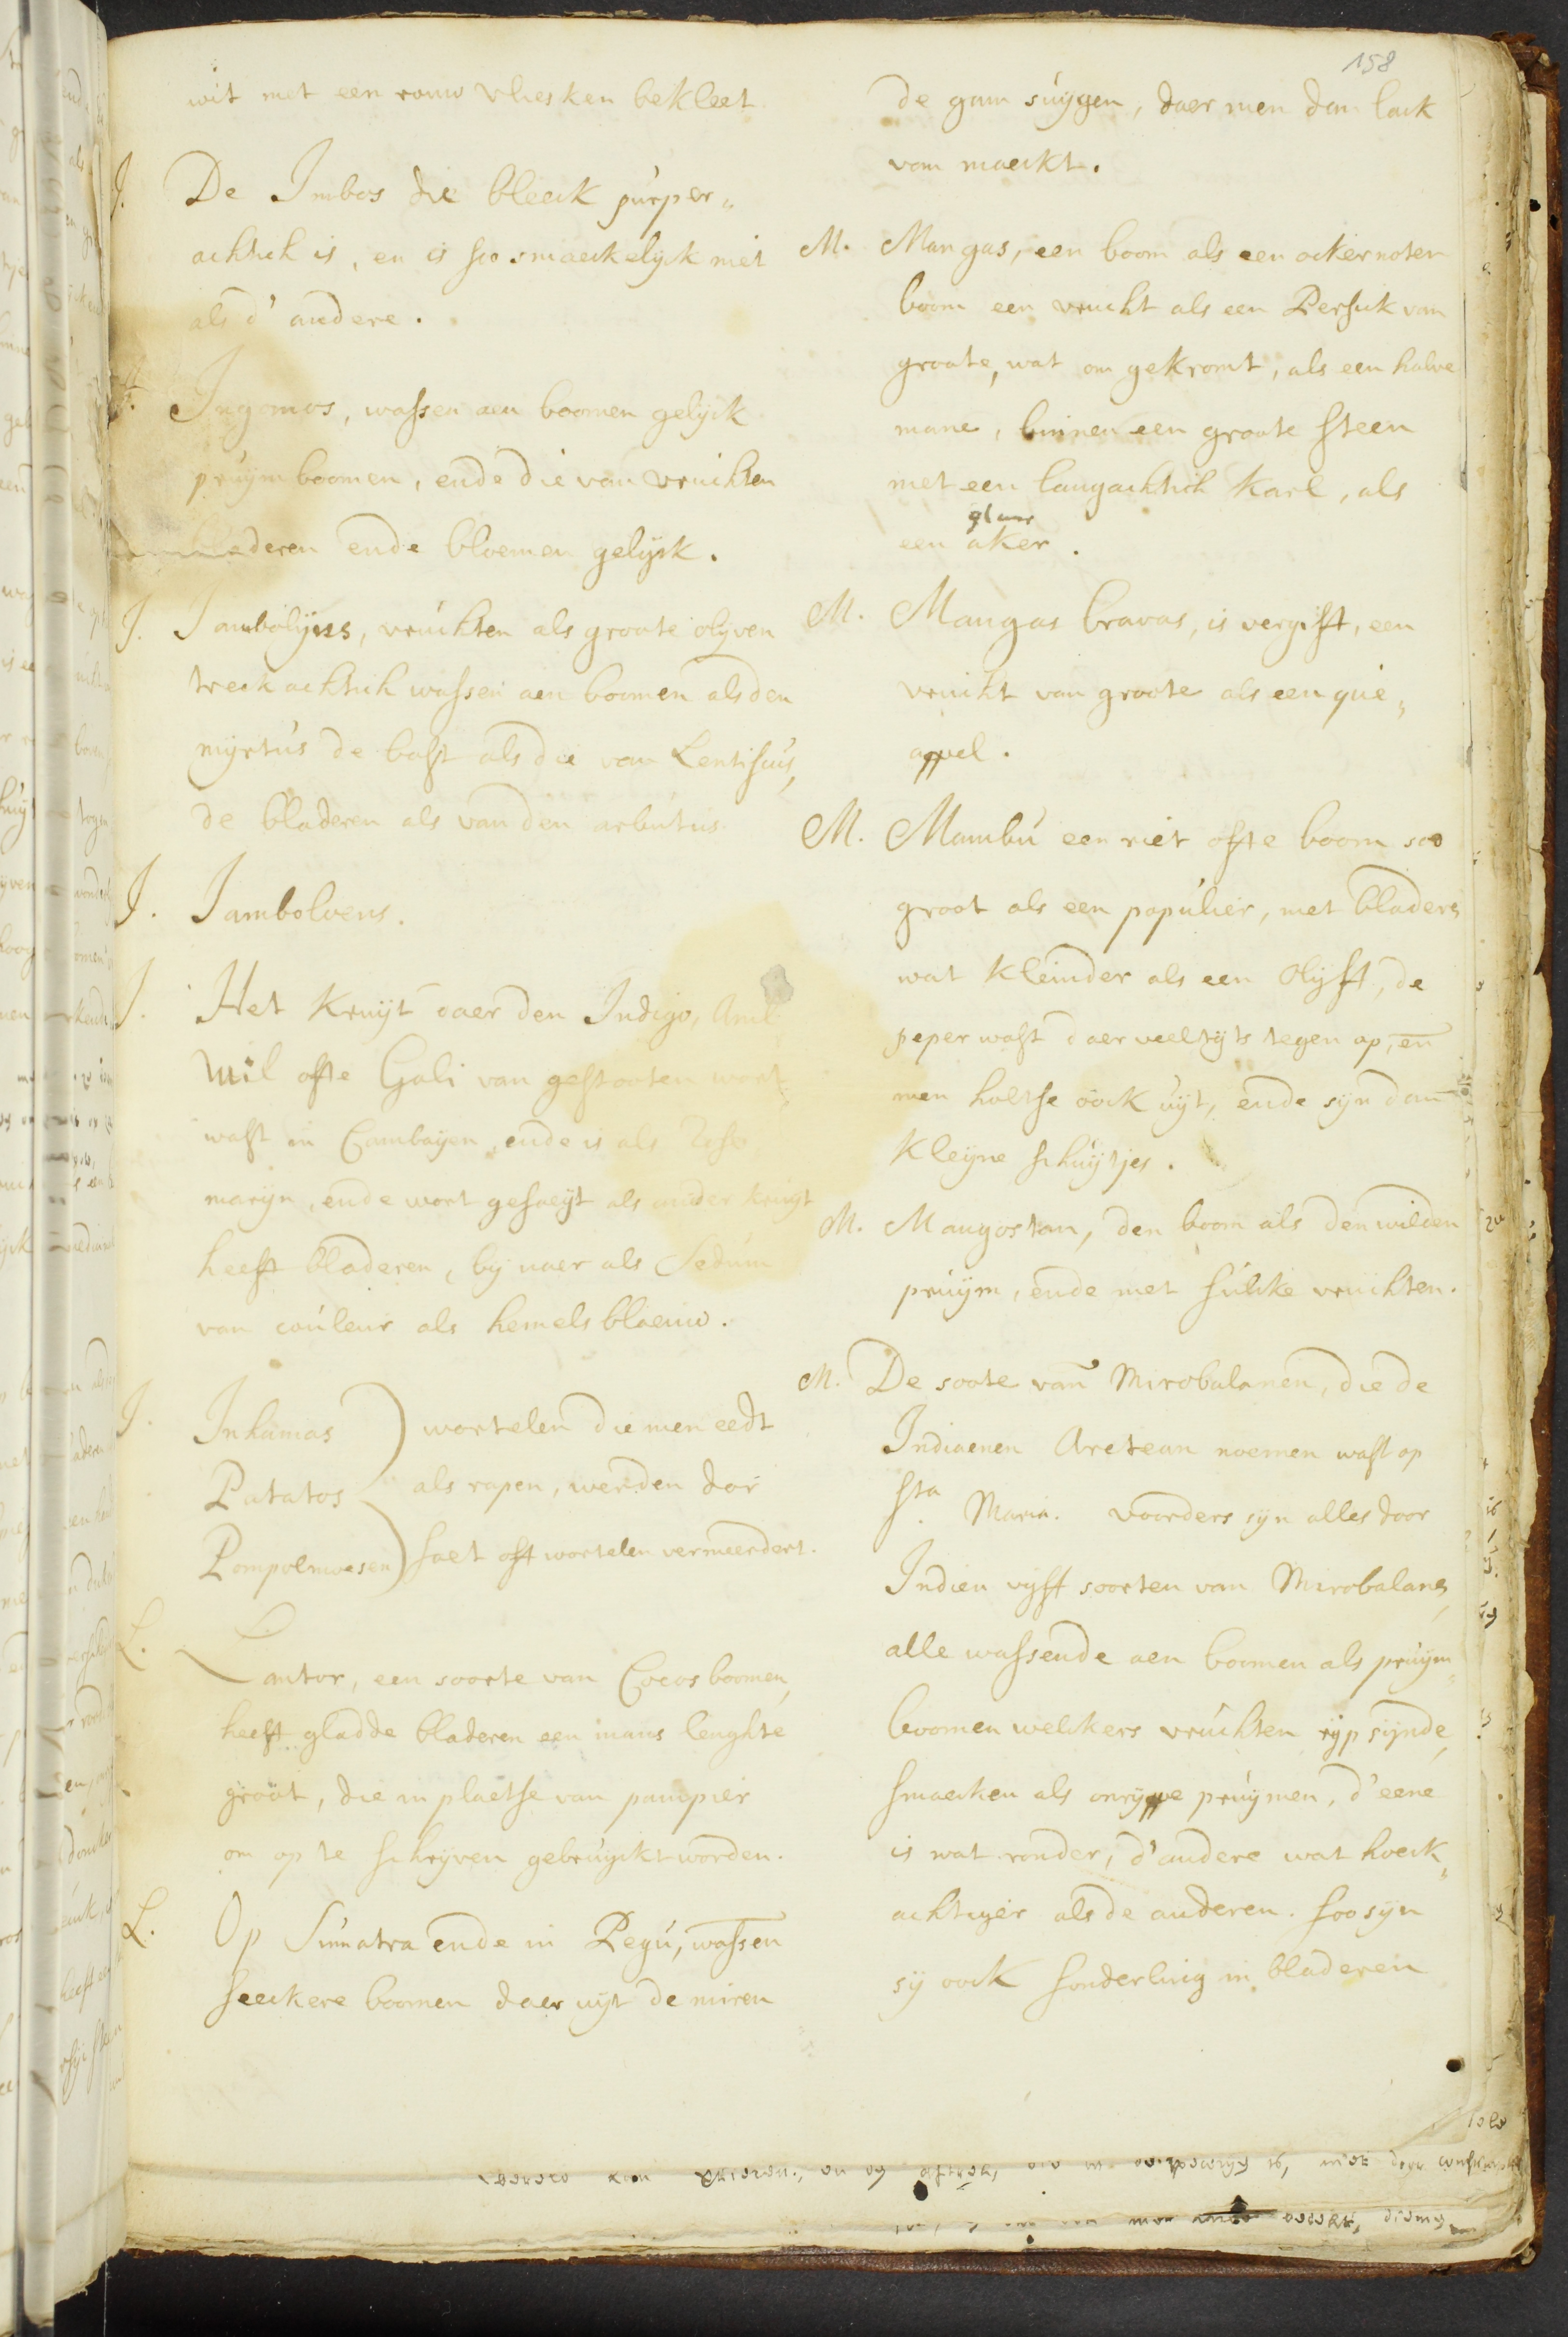 158
wit met een rouw vliesken bekleet
J. De Imbos die bleeck purper„
achtich is, en is soo smaeckelyck niet
als d' andere.
J. Ingomos, wassen aen boomen gelyck
pruymboomen, ende die van vruchten
bladeren ende bloemen gelyck.
J. Jambolyns, vruchten als groote olyven
treckachtich wassen aen boomen als den
myrtus de bast als die van Lentiscus,
de bladeren als van den arbutus.
J. Jamboloens.
J. Het kruyt daer den Indigo, Anil
Nil ofte Gali van gestooten wort
wast in Cambayen, ende is als Rose
maryn, ende wort gesaeyt als ander kruyt
heeft bladeren, by naer als Sedum
van couleur als hemels blaeuw.
J. Inhamas wortelen die men eedt
Patatos als rapen, werden dor
Pompoemoesen saet oft wortelen vermeerdert.
L. Lantor, een soorte van Cocos boomen,
heeft gladde bladeren een mans lenghte
groot, die in plaetse van pampier
om op te schryven gebruyckt worden.
L. Op Sumatra ende in Pegu, wassen
seeckere boomen daer uyt de miren
de gom suygen, daer men dan lack
van maeckt.
M. Mangas, een boom als een ockernoten
boom een vrucht als een Persick van
groote, wat om gekromt, als een halve
mane, binnen een groote steen
met een langachtich karl, als
een aker.
M. Mangas bravas, is vergift, een
vrucht van groote als een que„
appel.
M. Mambu een riet ofte boom soo
groot als een populier, met bladers
wat kleinder als een Olyft, de
peper wast daer veeltyts tegen op, en
men holtse oock uyt, ende syn dan
kleyne schuytjes.
M. Mangostan, den boom als den wilden
pruym, ende met sulcke vruchten.
M. De soote van Mirobalanen, die de
Indiaenen Aretean noemen wast op
Sta. Maria. voorders syn alles door
Indien vyft soorten van Mirobalans,
alle wassende aen boomen als pruym„
boomen welckers vruchten ryp synde,
smaecken als onryppe pruymen, d'eene
is wat ronder, d'andere wat hoeck„
achtiger als de anderen. soo syn
sy oock sonderling in bladeren